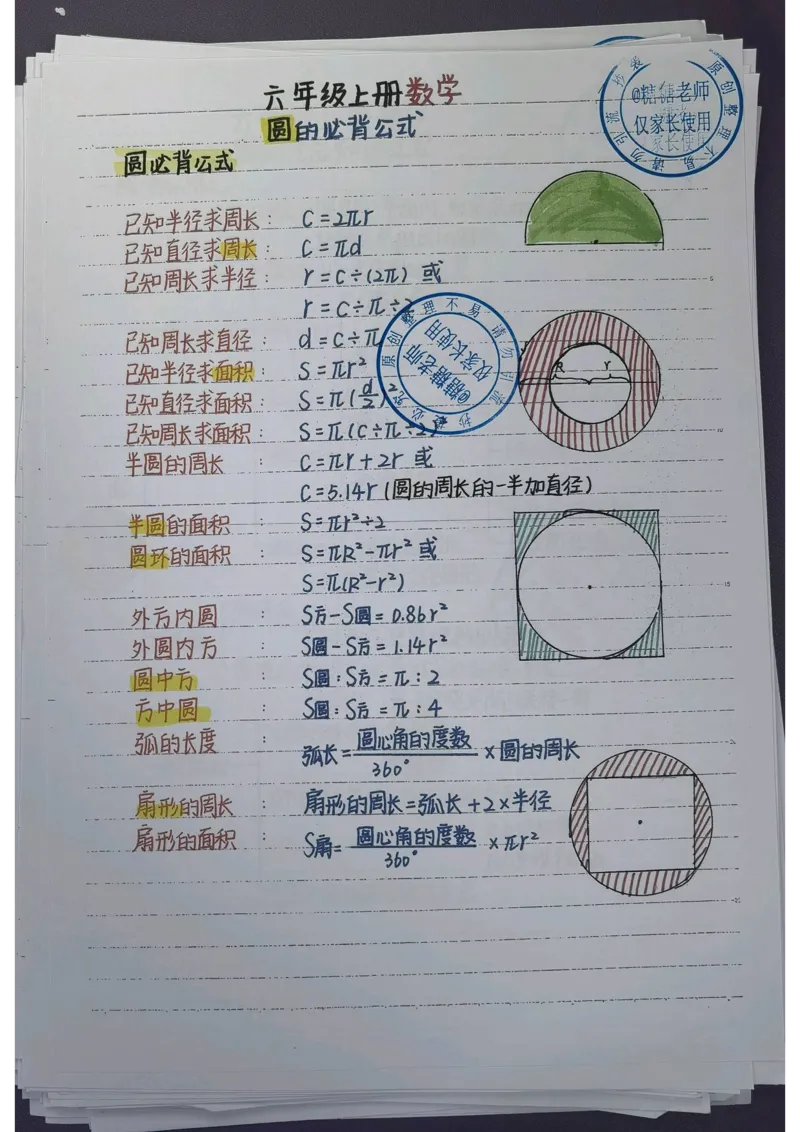 六年级上册数学
圆的必背公式
原创整理不易 请勿引流抄袭
@糖糖老师
仅家长使用
圆必背公式
已知半径求周长： C=2πr
已知直径求周长： C=πd
已知周长求半径： r=C÷(2π) 或
r=C÷π÷2
已知周长求直径： d=C÷π
已知半径求面积： S=πr²
已知直径求面积： S=π(d/2)²
已知周长求面积： S=π(C÷π÷2)²
原创整理不易 请勿引流抄袭必究
@糖糖老师
仅家长使用
R r
半圆的周长： C=πr+2r 或
C=5.14r (圆的周长的一半加直径)
半圆的面积： S=πr²÷2
圆环的面积： S=πR²-πr² 或
S=π(R²-r²)
外方内圆： S方-S圆=0.86r²
外圆内方： S圆-S方=1.14r²
圆中方： S圆:S方=π:2
方中圆： S圆:S方=π:4
弧的长度： 弧长=圆心角的度数/360°×圆的周长
扇形的周长： 扇形的周长=弧长+2×半径
扇形的面积： S扇=圆心角的度数/360°×πr²